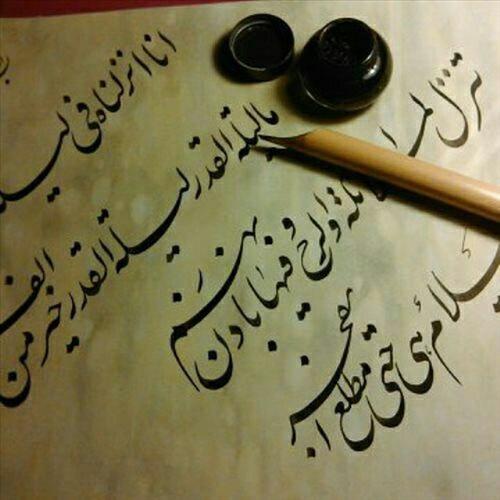 انا انزلناه فی لیلة
ما لیلة القدر لیلة القدر خیر من الف
تنزل الملائکة والروح فیها باذن ربهم
سلام هی حتی مطلع الفجر